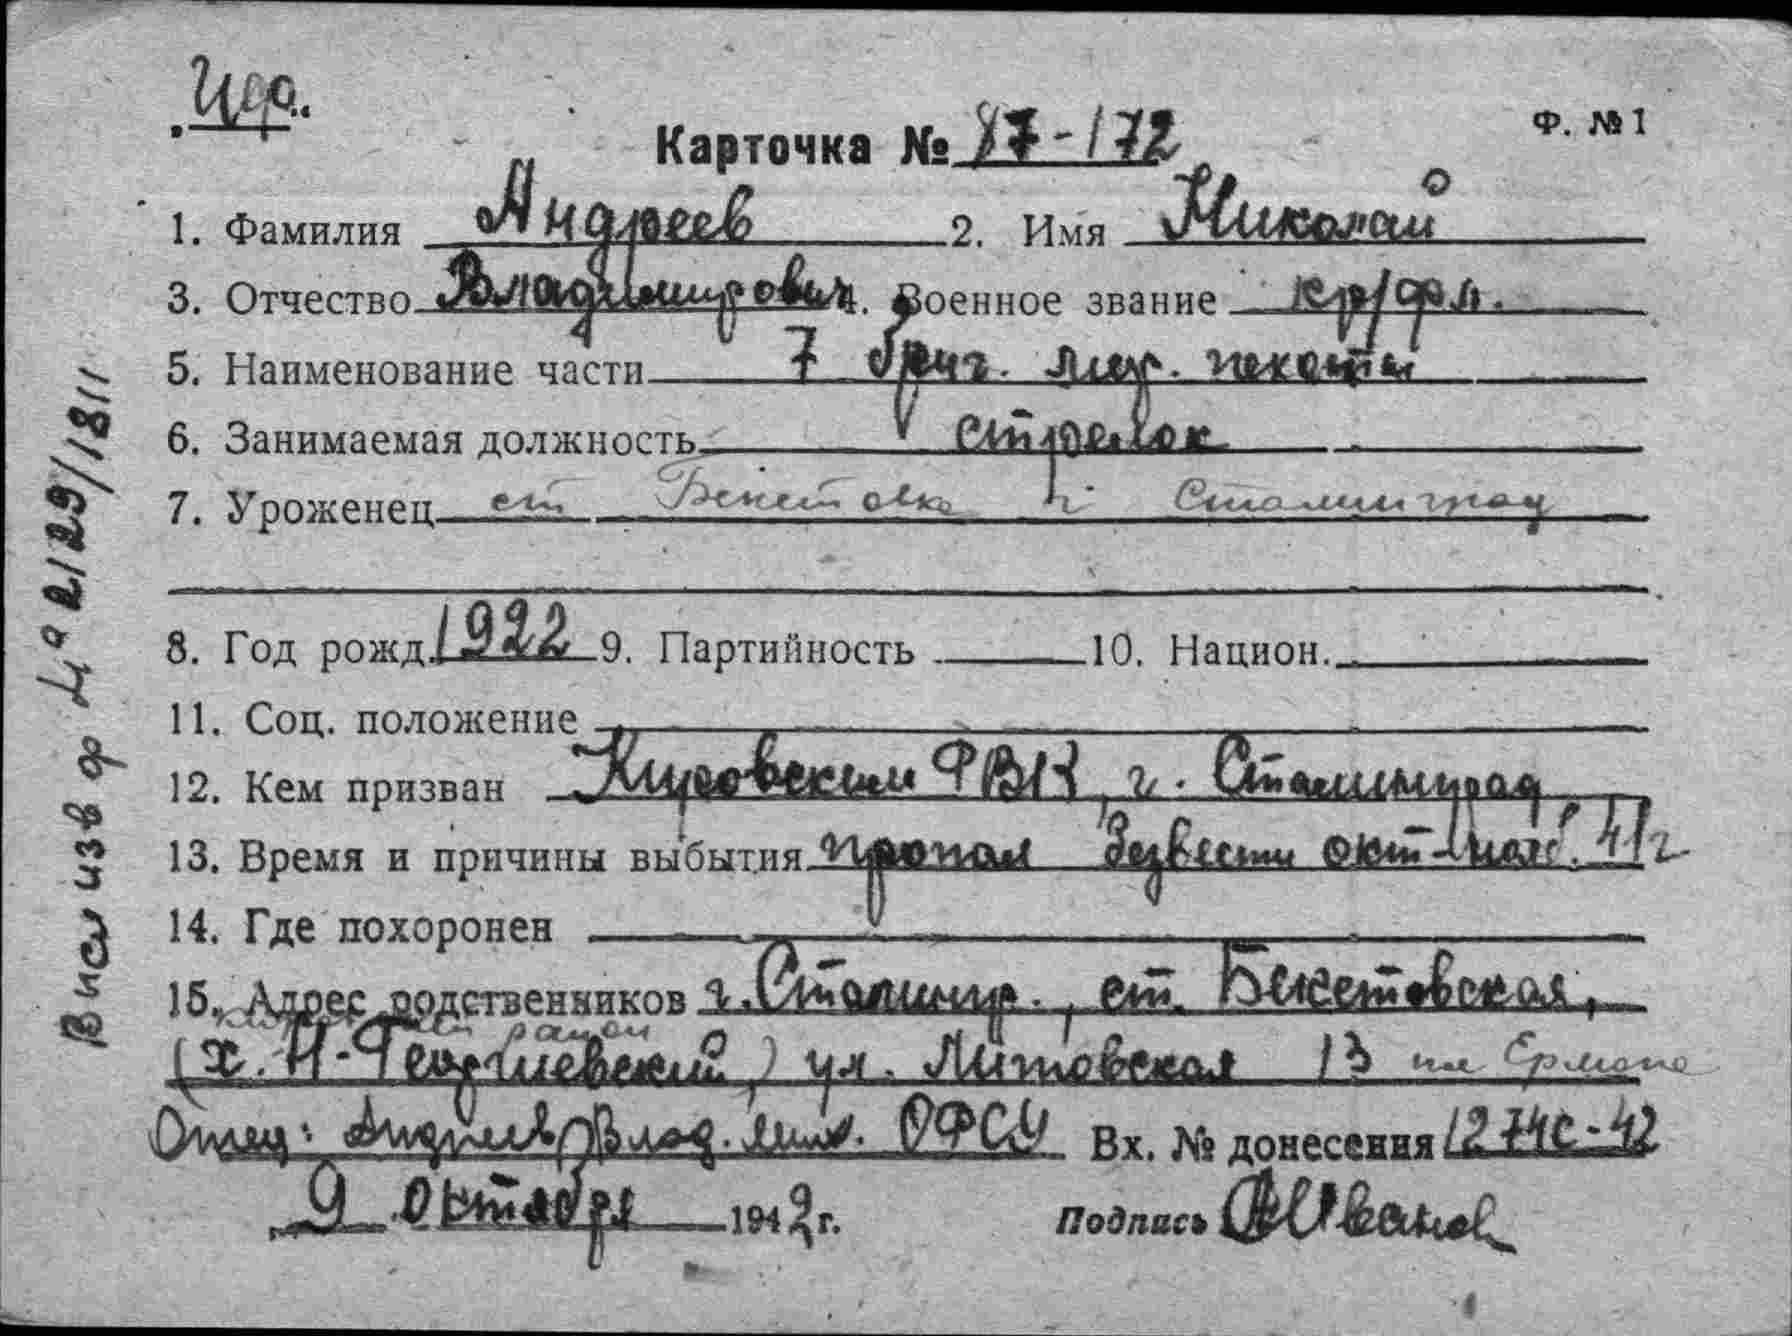 Карточка № 87-172
Ф. № 1
1. Фамилия Андреев 2. Имя Николай
3. Отчество Владимирович 4. Военное звание кр/фл.
5. Наименование части 7 бриг. мор. пехоты
6. Занимаемая должность стрелок
7. Уроженец ст Бекетовка г Сталинград
8. Год рожд. 1922 9. Партийность 10. Национ.
11. Соц. положение
12. Кем призван Кировским РВК, г. Сталинград
13. Время и причины выбытия пропал безвести окт-нояб. 41г
14. Где похоронен
15. Адрес родственников г. Сталингр., ст. Бекетовская,
район
(х. Н-Георгиевский) ул. Литовская 13 им Ермана
Отец: Андреев Влад. Вх. № донесения 1274с-42
9 октября 1942 г. Подпись Иванов
Выс изв ф 4а 2/129/1811